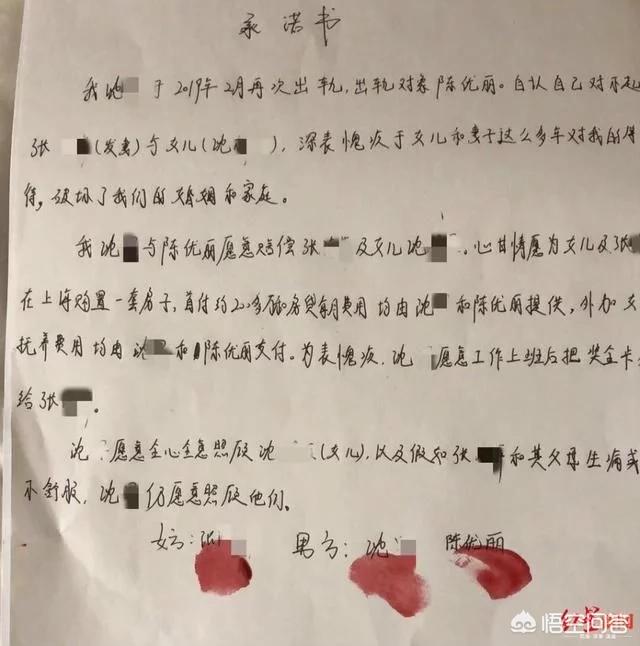 承诺书
我沈 于2019年2月再次出轨,出轨对象陈优丽。自认自己对不起
张 (发妻)与女儿(沈 ),深表愧疚于女儿和妻子这么多年对我的
待,破坏了我们的婚姻和家庭。
我沈 与陈优丽愿意赔偿张 及女儿沈 。心甘情愿为女儿及张
在上海购置一套房子,首付约 和房贷每月费用均由沈 和陈优丽提供,外加
抚养费用均由沈 和陈优丽交付。为表愧疚,沈 愿意工作上班后把奖金卡
给张 。
沈 愿意全心全意照顾沈 (女儿),以及假如张 和其父母生病或
不舒服,沈 仍愿意照顾他们。
女方:张 男方:沈 陈优丽
红星新闻
悟空问答